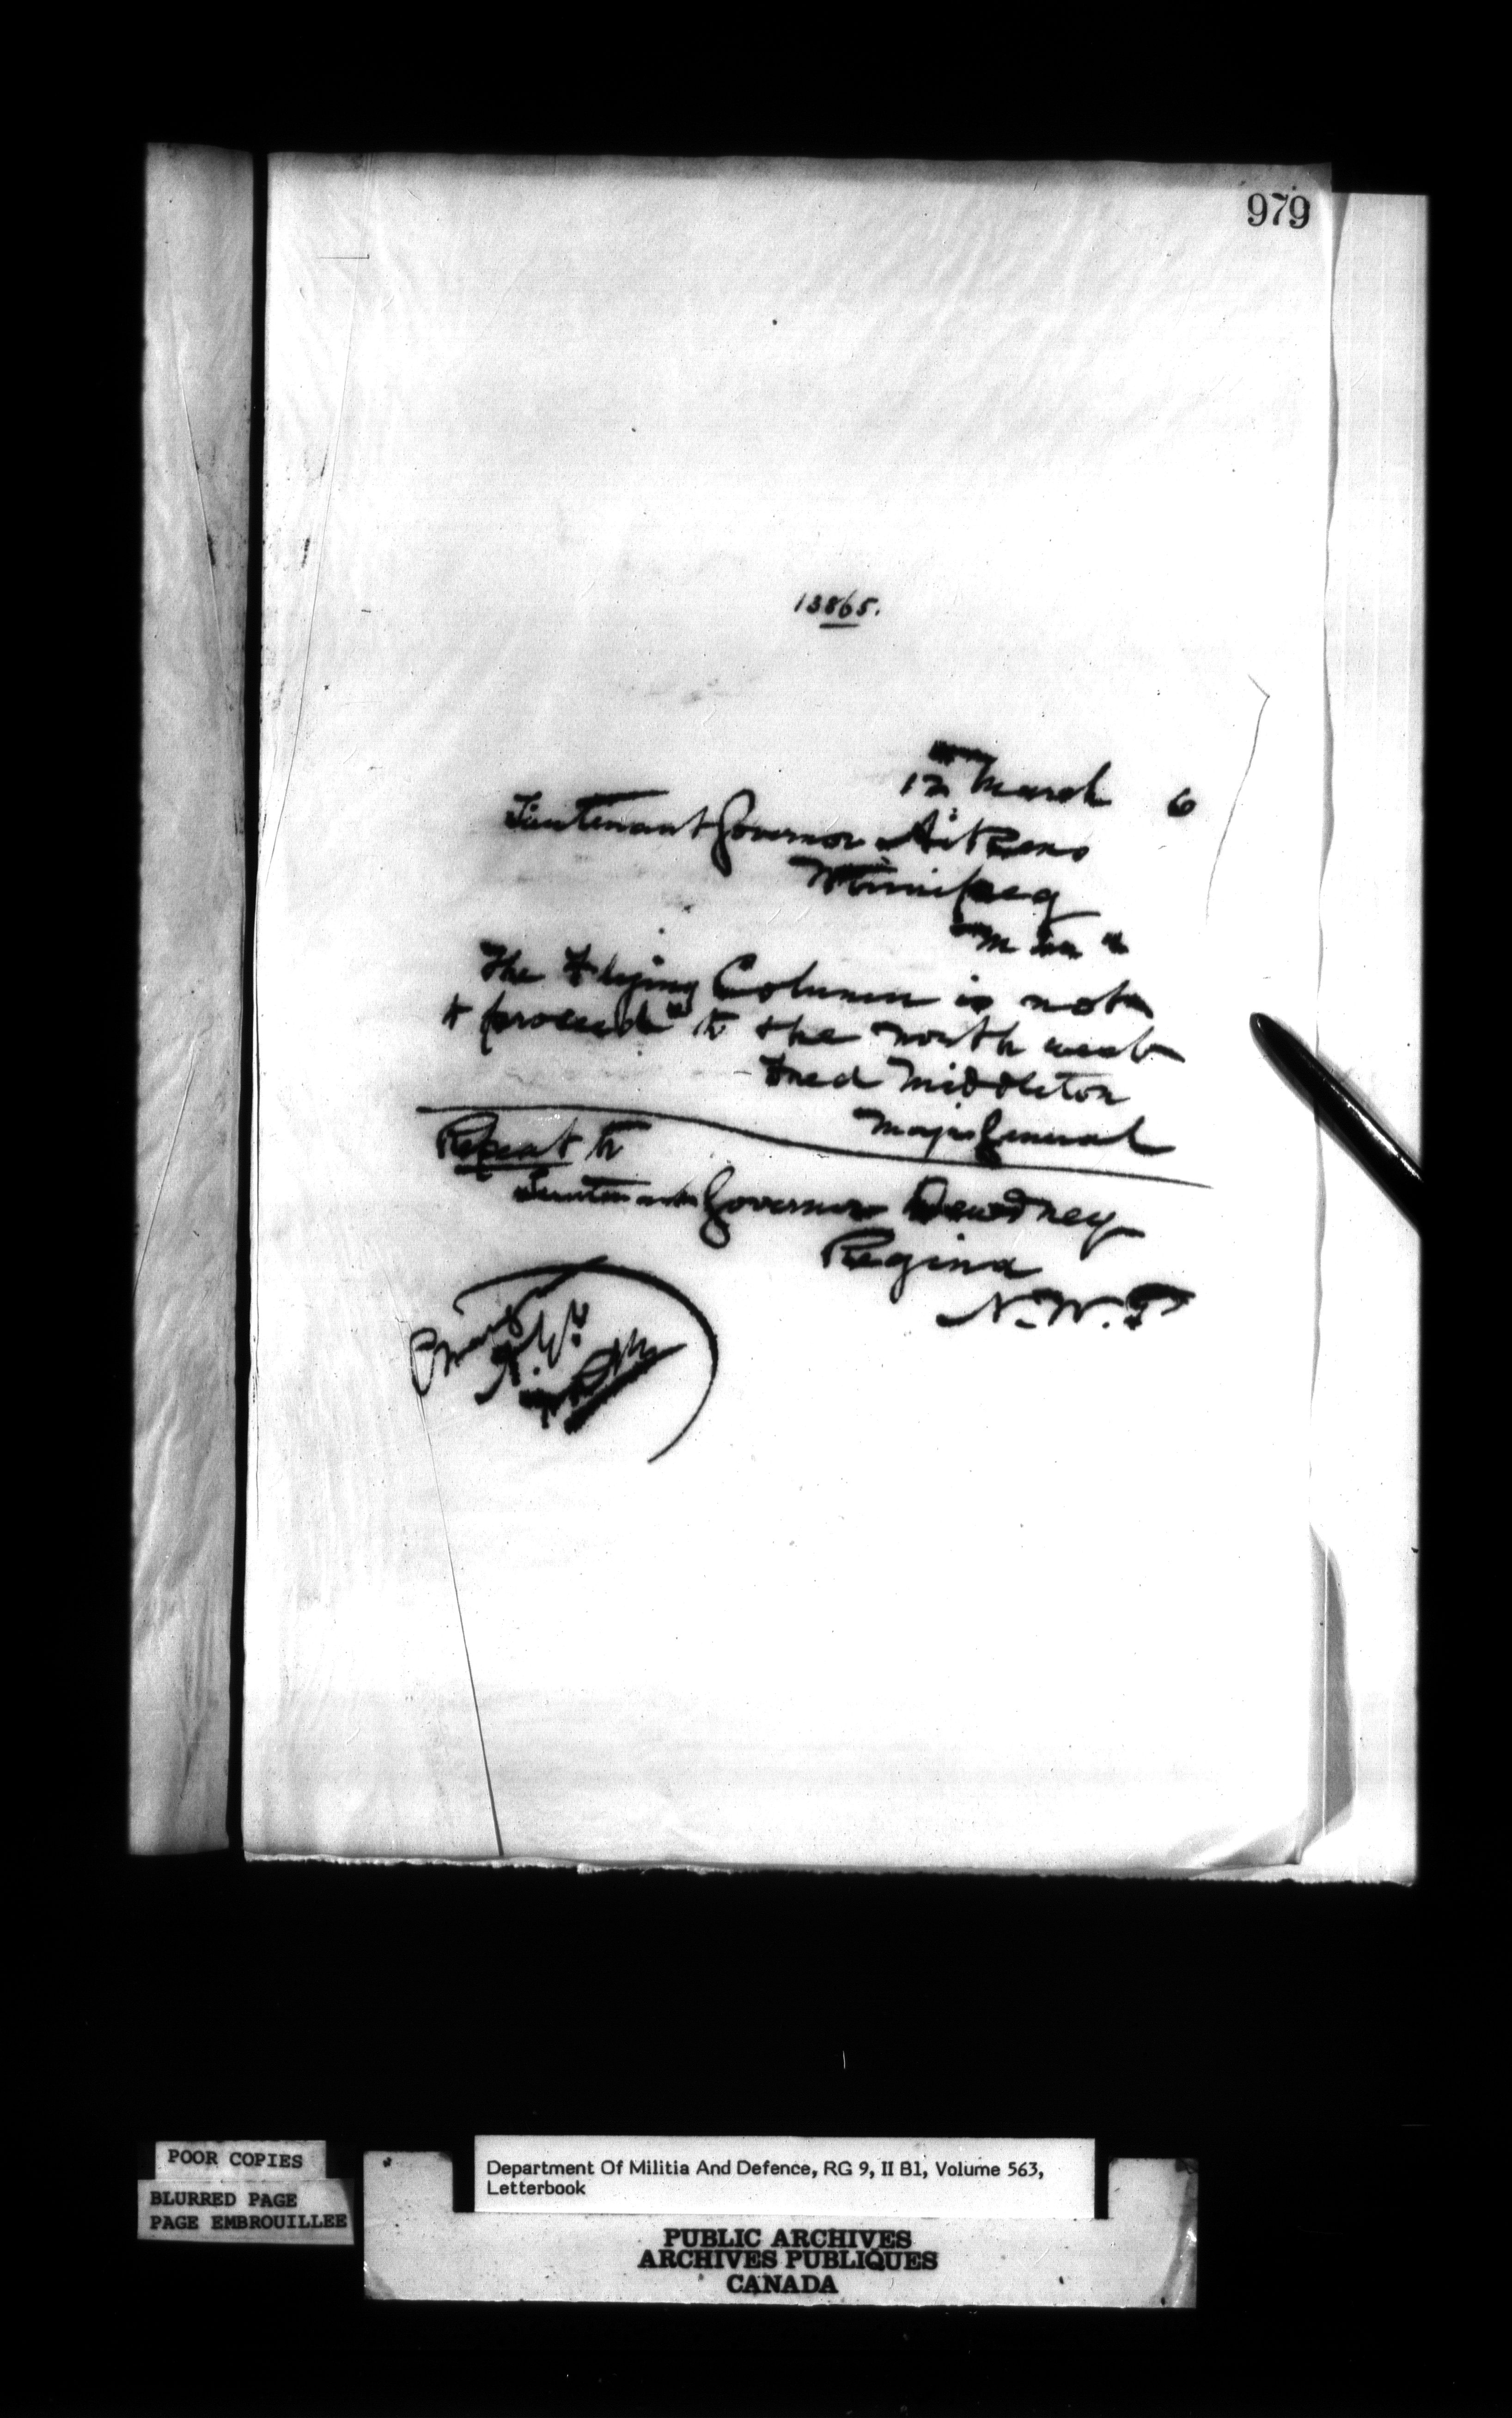 979
13865.
12 March 6
Lieutenant Governor Aikens
Winnipeg
The Flying Column is not
to proceed to the North west
Fred Middleton
Major General
Repeat to
Lieutenant Governor Dewdney
Regina
N.W.T
Charge
POOR COPIES
BLURRED PAGE
PAGE EMBROUILLEE
Department Of Militia And Defence, RG 9, II B1, Volume 563,
Letterbook
PUBLIC ARCHIVES
ARCHIVES PUBLIQUES
CANADA